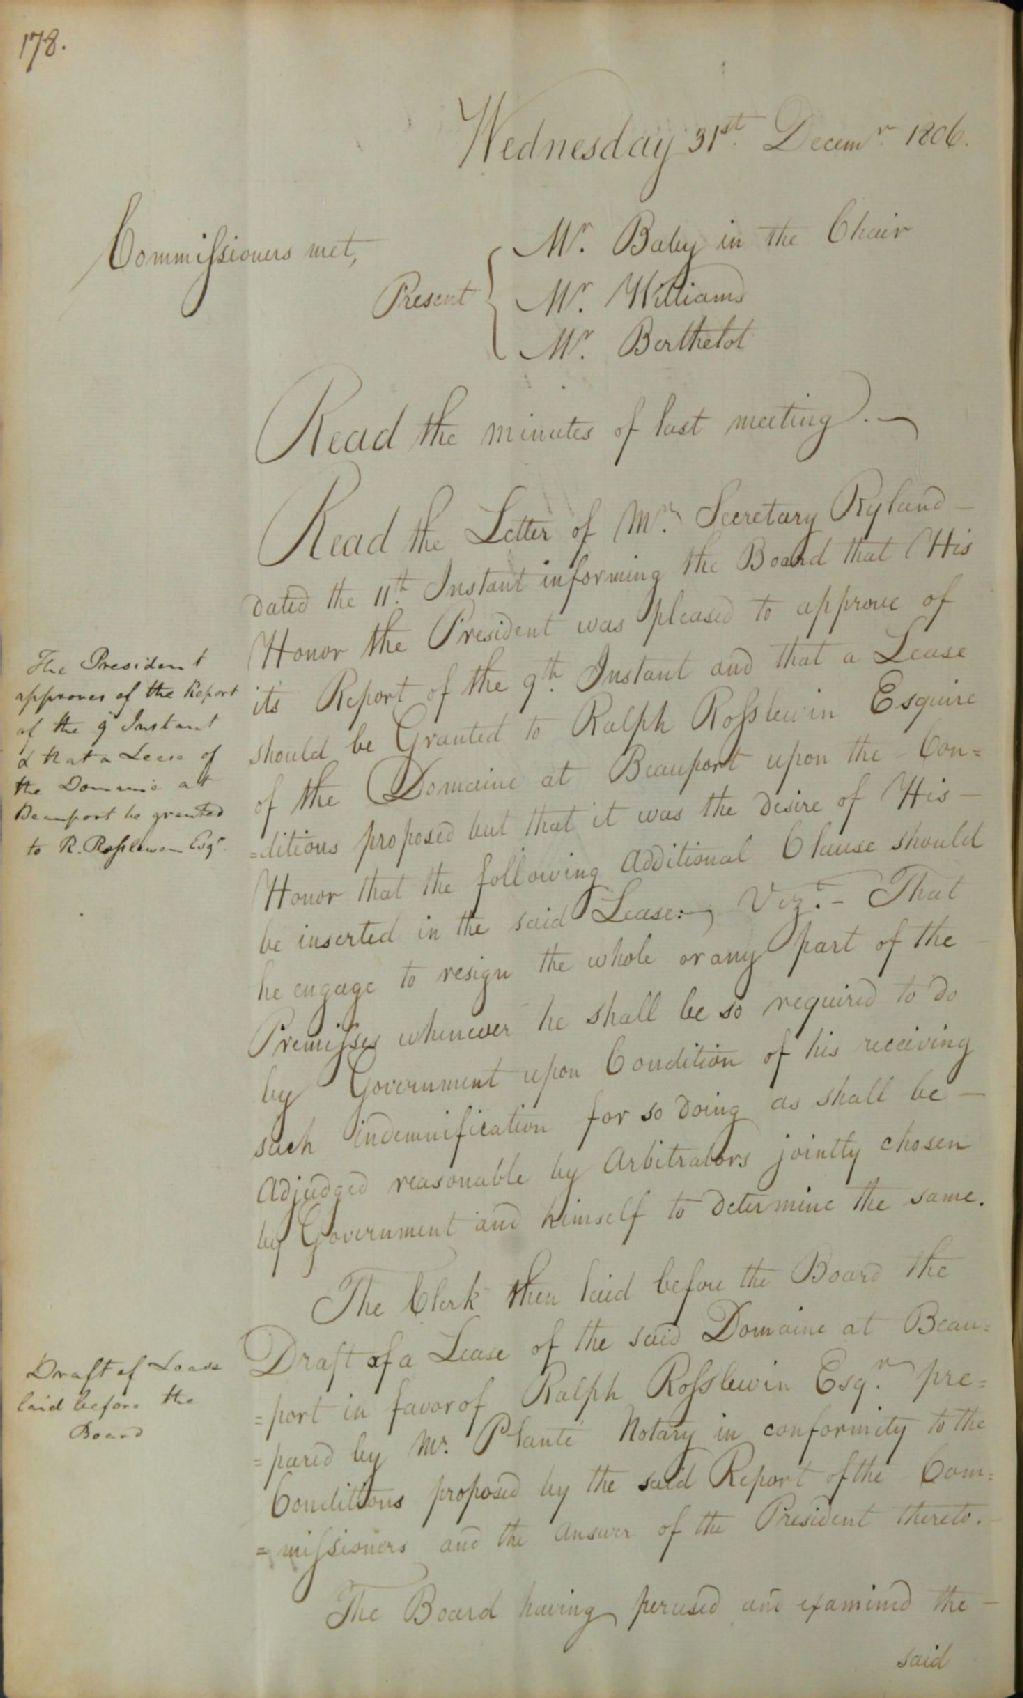 178.
Wednesday 31st. Decemr. 1806.
Commissioners met,
Present
Mr. Baby in the Chair
Mr. Williams
Mr. Berthelot
Read the minutes of last meeting.
Read the Letter of Mr. Secretary Ryland
dated the 11th. Instant informing the Board that His
Honor the President was pleased to approve of
its Report of the 9th. Instant and that a Lease
should be Granted to Ralph Rosslewin Esquire
of the Domaine at Beauport upon the Con=
=ditions proposed but that it was the desire of His
Honor that the following additional Clause should
be inserted in the said Lease: Vizt. - That
he engage to resign the whole or any part of the
Premisses whenever he shall be so required to do
by Government upon Condition of his receiving
such indemnification for so doing as shall be
adjudged reasonable by Arbitrators jointly chosen
by Government and himself to determine the same.
The President
approves of the Report
of the 9 Instant
& that a Lease of
the Domaine at
Beauport be granted
to R. Rosslewin Esqr.
The Clerk then laid before the Board the
Draft of a Lease of the said Domaine at Beau=
=port in favor of Ralph Rosslewin Esqr. pre=
=pared by Mr. Planté Notary in conformity to the
Conditions proposed by the said Report of the Com=
=missioners and the answer of the President thereto.
Draft of Lease
laid before the
Board
The Board having perused and examined the
said